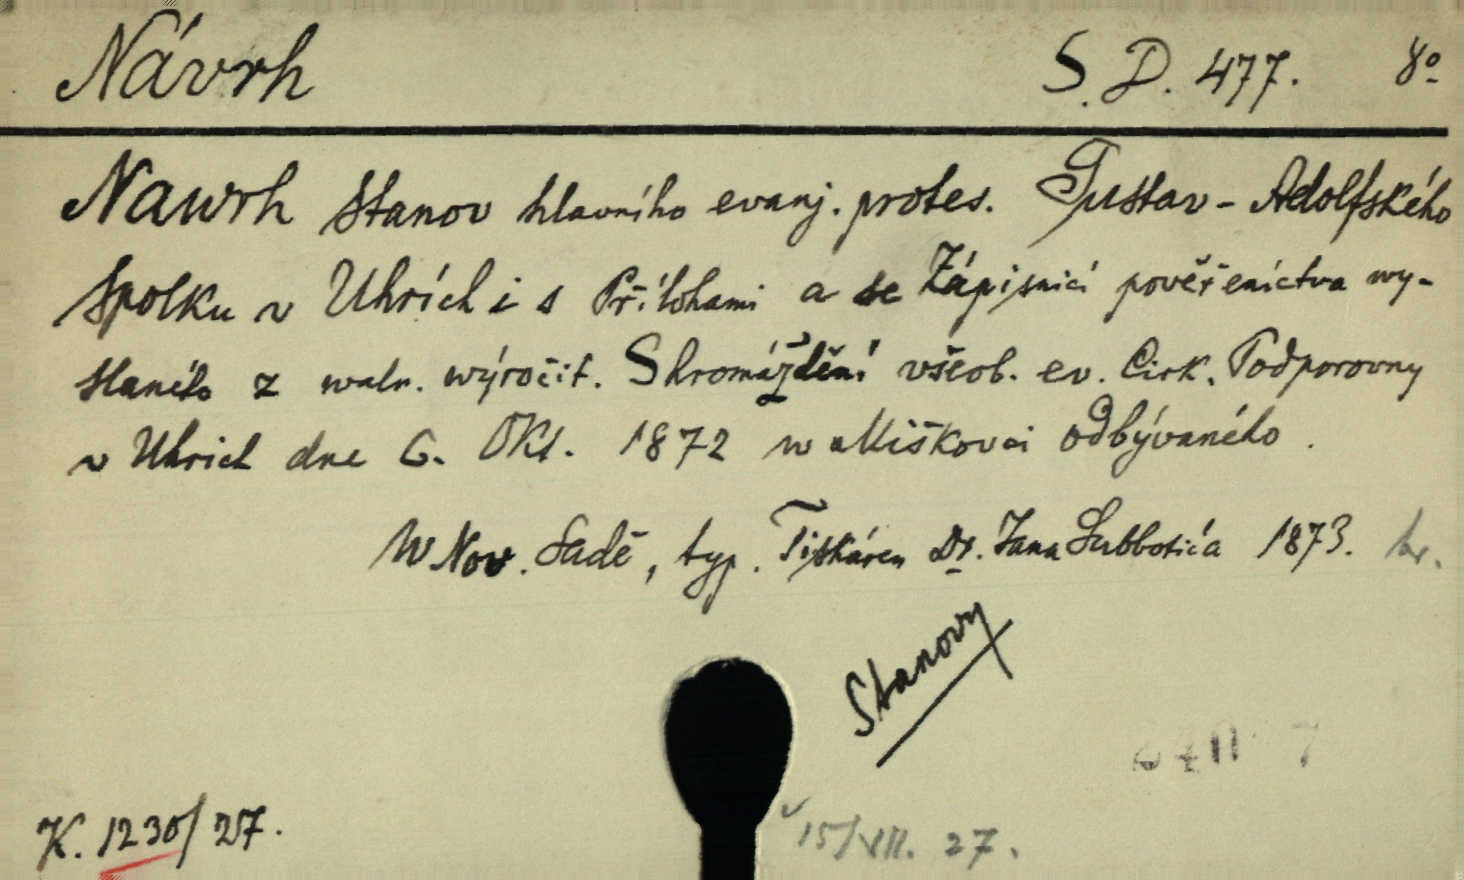 Návrh S. D. 477. 8º
Nawrh stanov hlavního evanj. protes. Gustav-Adolfského
spolku v Uhrích i s Přílohami a se Zápisnicí pověřenictva wy-
slaného z waln. wýročit. Shromáždění všeob. ev. Cirk. Podporovny
v Uhrich dne 6. Okt. 1872 w Miškovci odbývaného.
W Nov. Sadě, typ. Tiskáren Dr. Jana Subbotića 1873. br.
Stanovy
K. 1230/27.
15/VII. 27.